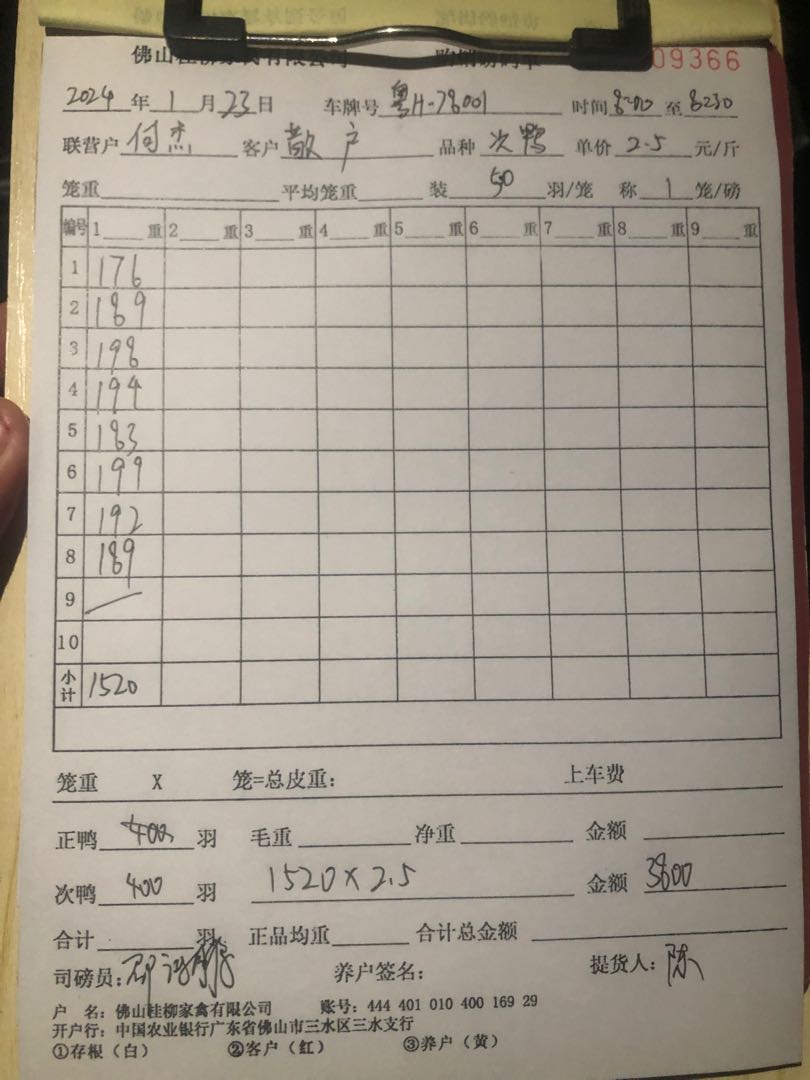 佛山桂柳家禽有限公司 购销磅码单 09366
2024 年 1 月 23 日 车牌号 粤H-78001 时间 8:00 至 8:30
联营户 何杰 客户 散户 品种 次鸭 单价 2.5 元/斤
笼重 平均笼重 装 50 羽/笼 称 1 笼/磅
编号 1 重 2 重 3 重 4 重 5 重 6 重 7 重 8 重 9 重
1 176
2 189
3 198
4 194
5 183
6 199
7 192
8 189
9 /
10
小计 1520
笼重 X 笼=总皮重: 上车费
正鸭 400 羽 毛重 净重 金额
次鸭 400 羽 1520×2.5 金额 3800
合计 羽 正品均重 合计总金额
司磅员: 养户签名: 提货人: 陈
户 名: 佛山桂柳家禽有限公司 账号: 444 401 010 400 169 29
开户行: 中国农业银行广东省佛山市三水区三水支行
①存根(白) ②客户(红) ③养户(黄)